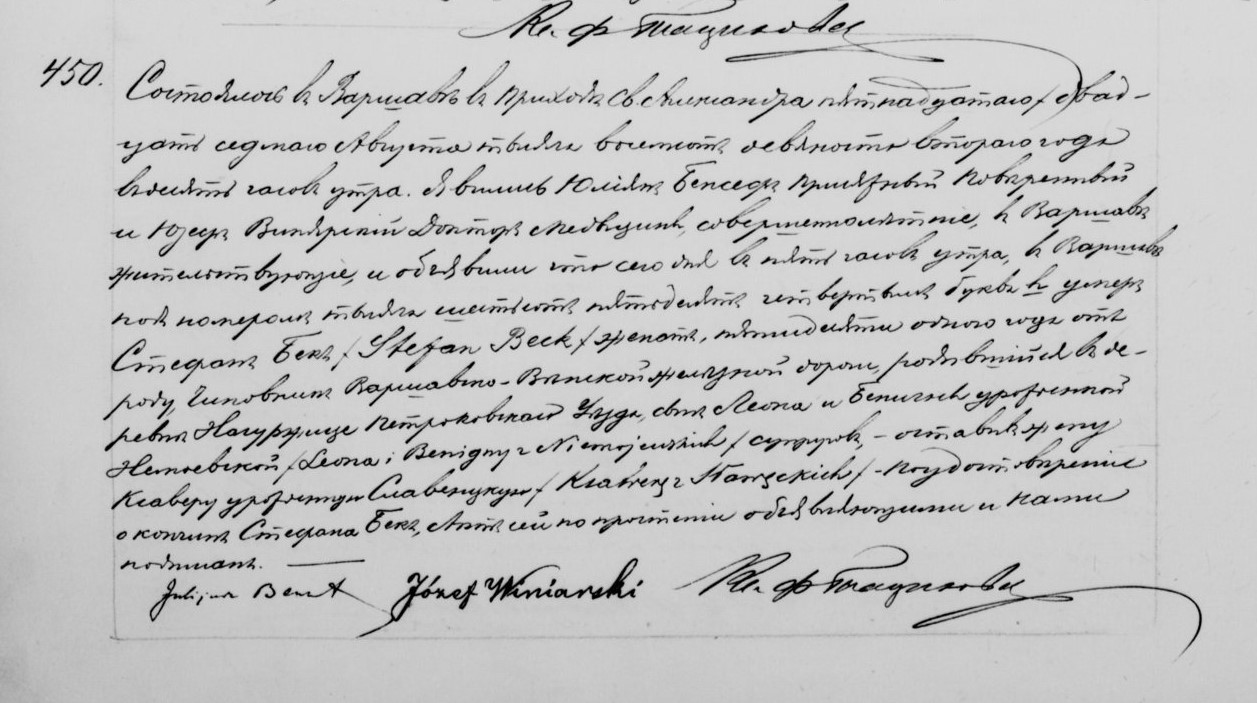 Кс. Ф
450.
Состоялось въ Варшавѣ въ приходѣ Св. Александра пятнадцатаго / двад-
цать седьмаго Августа тысяча восемьсотъ девяносто втораго года
въ десять часовъ утра. Явились Юліянъ присяжный повѣренный
и Юзефъ Винярскій Докторъ Медицины, совершеннолѣтніе, въ Варшавѣ
жительствующіе, и объявили что сего дня въ пять часовъ утра, въ Варшавѣ
подъ номеромъ тысяча шестьсотъ пятьдесятъ четвертымъ буква умеръ
Стефанъ Бекъ / Stefan Beck / женатъ, пятидесяти одного года отъ
роду, Чиновникъ Варшавско-Вѣнской желѣзной дороги, родившійся въ де-
ревнѣ Петроковскаго Уѣзда, сынъ Леона и Бенигны урожденной
Немоевской / Leona i Benigny z Niemojewskich / супруговъ, - оставивъ жену
Ксаверу урожденную Славецкую / Ksawerę z Sławeckich / - По удостовѣреніи
о кончинѣ Стефана Бекъ, Актъ сей по прочтеніи объявляющими и Нами
подписанъ. —
Julijan Józef Winiarski Кс. Ф